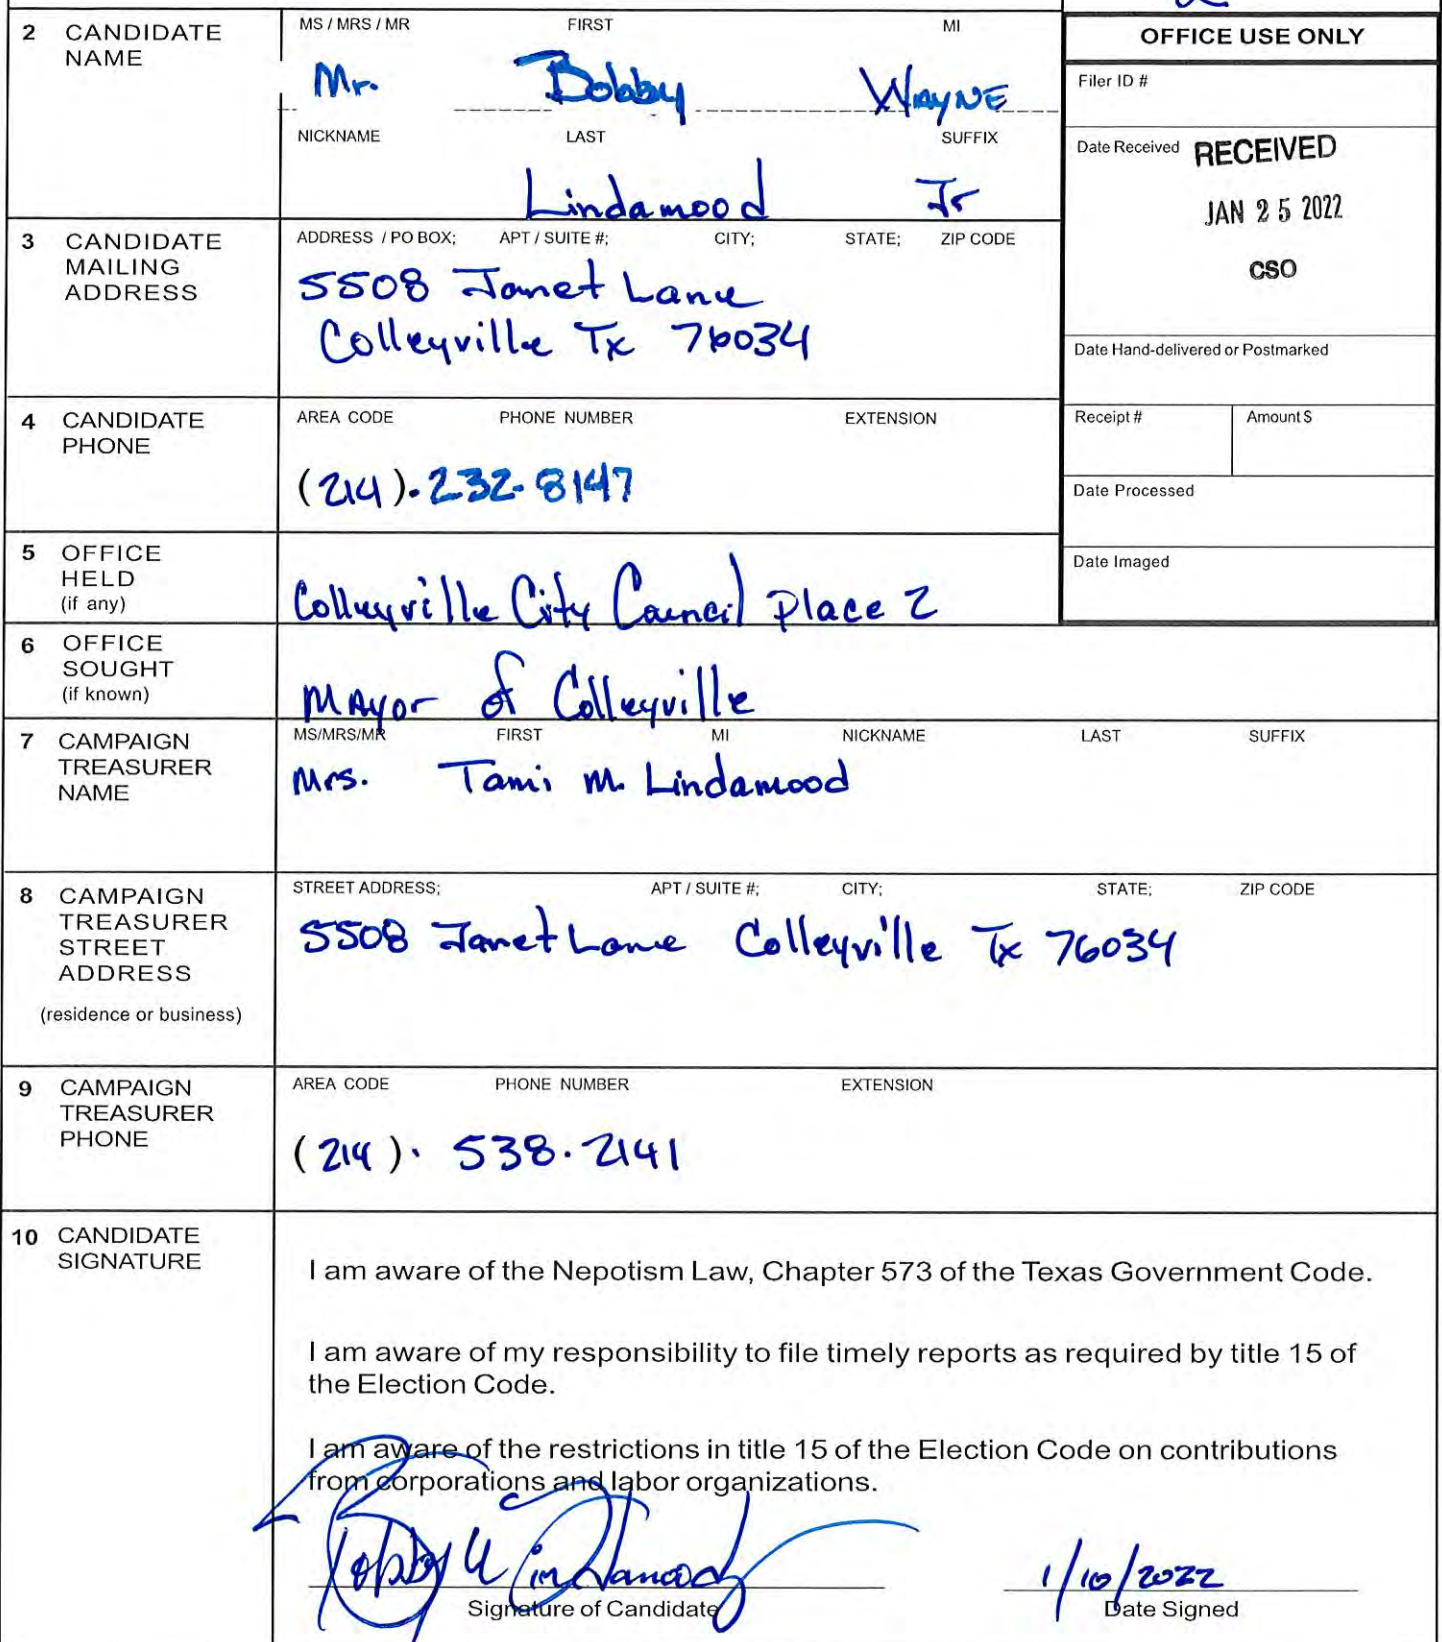 2 CANDIDATE NAME
MS / MRS / MR FIRST MI
Mr. Bobby WAYNE
NICKNAME LAST SUFFIX
Lindamood Jr
OFFICE USE ONLY
Filer ID #
Date Received RECEIVED
JAN 25 2022
CSO
Date Hand-delivered or Postmarked
Receipt # Amount $
Date Processed
Date Imaged
3 CANDIDATE MAILING ADDRESS
ADDRESS / PO BOX; APT / SUITE #; CITY; STATE; ZIP CODE
5508 Janet Lane
Colleyville Tx 76034
4 CANDIDATE PHONE
AREA CODE PHONE NUMBER EXTENSION
(214). 232-8147
5 OFFICE HELD (if any)
Colleyville City Council Place 2
6 OFFICE SOUGHT (if known)
Mayor of Colleyville
7 CAMPAIGN TREASURER NAME
MS/MRS/MR FIRST MI NICKNAME LAST SUFFIX
Mrs. Tami M. Lindamood
8 CAMPAIGN TREASURER STREET ADDRESS
(residence or business)
STREET ADDRESS; APT / SUITE #; CITY; STATE; ZIP CODE
5508 Janet Lane Colleyville Tx 76034
9 CAMPAIGN TREASURER PHONE
AREA CODE PHONE NUMBER EXTENSION
(214). 538.2141
10 CANDIDATE SIGNATURE
I am aware of the Nepotism Law, Chapter 573 of the Texas Government Code.
I am aware of my responsibility to file timely reports as required by title 15 of
the Election Code.
I am aware of the restrictions in title 15 of the Election Code on contributions
from corporations and labor organizations.
Bobby W Lindamood 1/10/2022
Signature of Candidate Date Signed